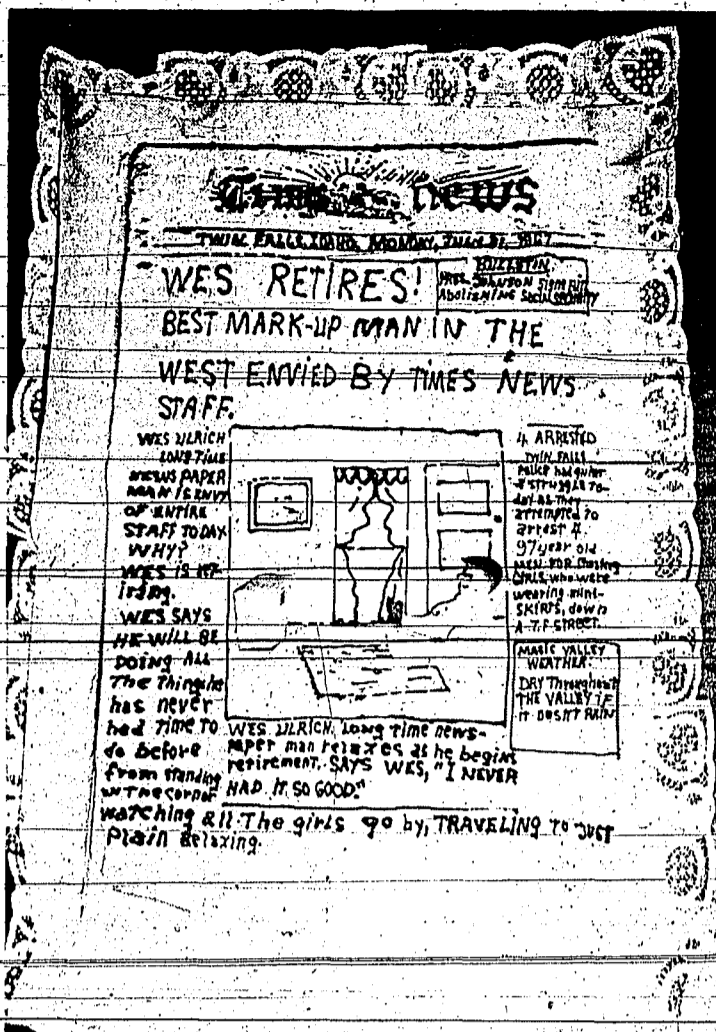 Times news
TWIN FALLS, IDAHO, MONDAY, JULY 31, 1967
WES RETIRES!
BULLETIN
PRES. JOHNSON signs Bill
Abolishing SOCIAL SECURITY
BEST MARK-UP MAN IN THE
WEST ENVIED BY TIMES NEWS
STAFF.
WES ULRICH
LONG TIME
NEWS PAPER
MAN IS ENVY
OF ENTIRE
STAFF TODAY
WHY?
WES IS RET-
iring.
WES SAYS
HE WILL BE
DOING ALL
The Things he
has never
had TIME TO
do before
from standing
IN THE CORNOR
watching all The girls go by, TRAVELING TO JUST
Plain Relaxing.
WES ULRICH, Long Time news-
paper man relaxes as he begins
retirement. SAYS WES, "I NEVER
HAD IT SO GOOD."
4 ARRESTED
TWIN FALLS
Police had quite
a struggle to-
day as they
attempted to
arrest 4
97 year old
MEN FOR Chasing
GIRLS, who were
wearing mini-
SKIRTS, down
A T.F. STREET.
MAGIC VALLEY
WEATHER:
DRY Throughout
THE VALLEY IF
IT DOSN'T RAIN